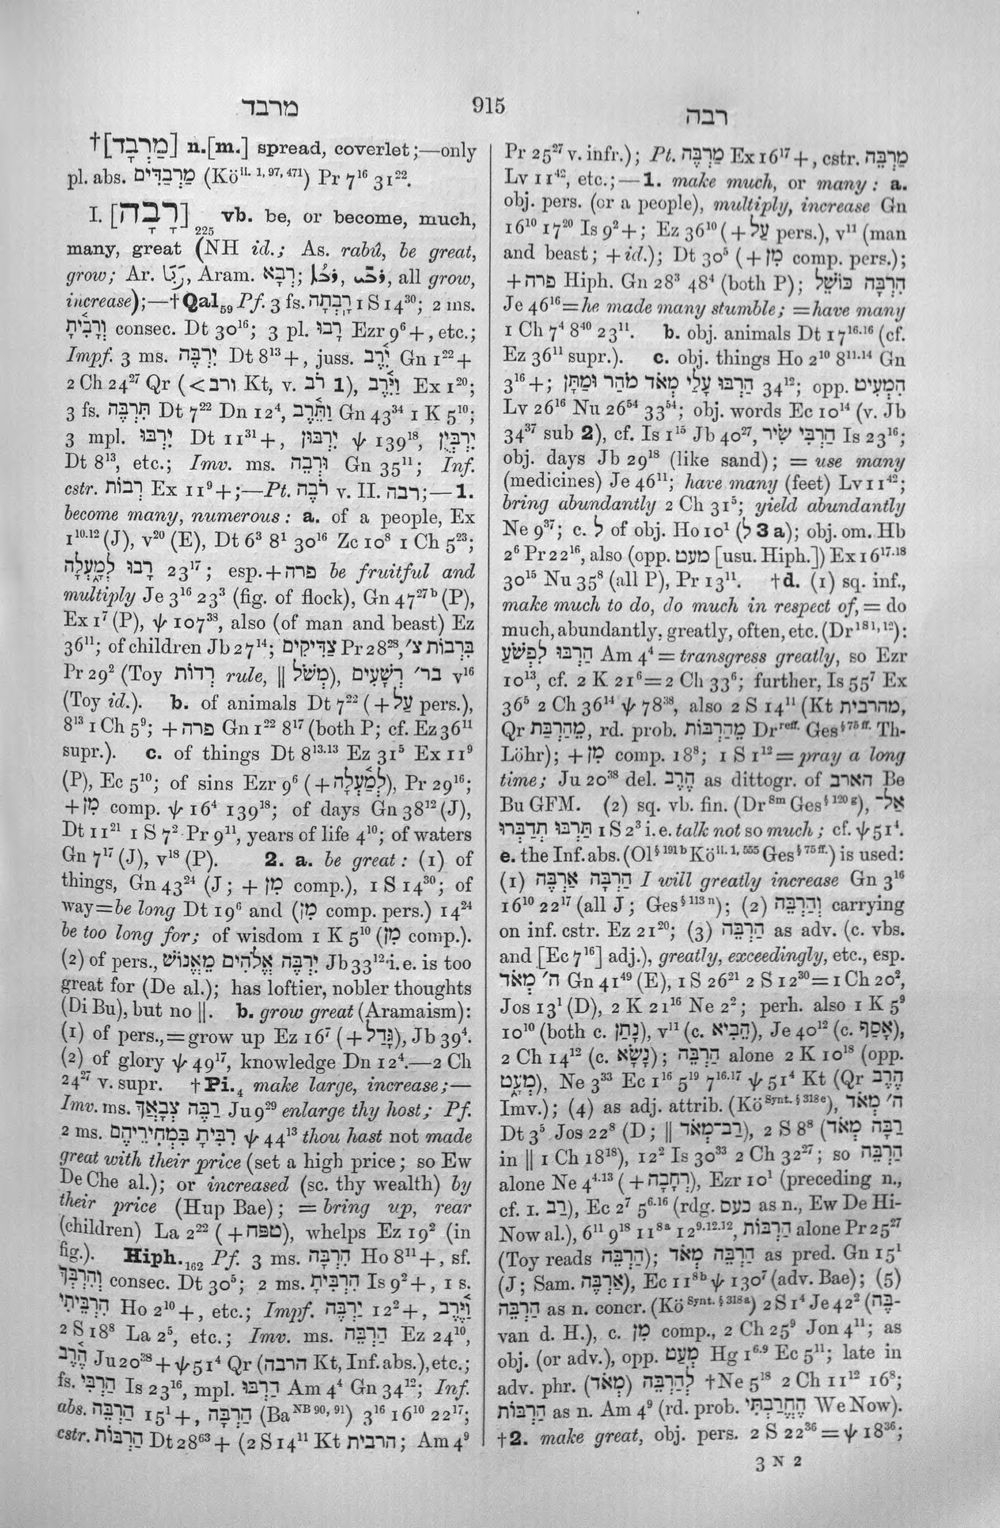 מרבד
915
רבה
†[מַרְבָד] n.[m.] spread, coverlet;—only
pl. abs. מַרְבַדִּים (Kö^ii. 1, 97, 471) Pr 7^16 31^22.
I. [רָבָה]_225 vb. be, or become, much,
many, great (NH id.; As. rabû, be great,
grow; Ar. Aram. רְבָא; all grow,
increase);—†Qal_59 Pf. 3 fs. רָבְתָה 1 S 14^30; 2 ms.
וְרָבִיתָ consec. Dt 30^16; 3 pl. רָבוּ Ezr 9^6+, etc.;
Impf. 3 ms. יִרְבֶּה Dt 8^13+, juss. יִרֶב Gn 1^22+
2 Ch 24^27 Qr (< ורב Kt, v. רֹב 1), וַיִּרֶב Ex 1^20;
3 fs. תִּרְבֶּה Dt 7^22 Dn 12^4, וַתֵּרֶב Gn 43^34 1 K 5^10;
3 mpl. יִרְבּוּ Dt 11^31+, יִרְבּוּן ψ 139^18, יִרְבְּיֻן
Dt 8^13, etc.; Imv. ms. וּרְבֵה Gn 35^11; Inf.
cstr. רְבוֹת Ex 11^9+;—Pt. רֹבֶה v. II. רבה;—1.
become many, numerous: a. of a people, Ex
1^10.12 (J), v^20 (E), Dt 6^3 8^1 30^16 Zc 10^8 1 Ch 5^23;
רָבוּ לְמַעְלָה 23^17; esp. + פרה be fruitful and
multiply Je 3^16 23^3 (fig. of flock), Gn 47^27b (P),
Ex 1^7 (P), ψ 107^38, also (of man and beast) Ez
36^11; of children Jb 27^14; צַדִּיקִים Pr 28^28, בִּרְבוֹת צ׳
Pr 29^2 (Toy רדות rule, || מְשֹׁל), בר׳ רְשָׁעִים v^16
(Toy id.). b. of animals Dt 7^22 (+ עַל pers.),
8^13 1 Ch 5^9; + פרה Gn 1^22 8^17 (both P; cf. Ez 36^11
supr.). c. of things Dt 8^13.13 Ez 31^5 Ex 11^9
(P), Ec 5^10; of sins Ezr 9^6 (+ לְמַעְלָה), Pr 29^16;
+ מִן comp. ψ 16^4 139^18; of days Gn 38^12 (J),
Dt 11^21 1 S 7^2 Pr 9^11, years of life 4^10; of waters
Gn 7^17 (J), v^18 (P). 2. a. be great: (1) of
things, Gn 43^24 (J; + מִן comp.), 1 S 14^30; of
way=be long Dt 19^6 and (מִן comp. pers.) 14^24
be too long for; of wisdom 1 K 5^10 (מִן comp.).
(2) of pers., יִרְבֶּה אֱלֹהִים מֵאֱנוֹשׁ Jb 33^12 i.e. is too
great for (De al.); has loftier, nobler thoughts
(Di Bu), but no ||. b. grow great (Aramaism):
(1) of pers.,=grow up Ez 16^7 (+ גָּדֵל), Jb 39^4.
(2) of glory ψ 49^17, knowledge Dn 12^4.—2 Ch
24^27 v. supr. †Pi._4 make large, increase;—
Imv. ms. רַבֶּה צְבָאֲךָ Ju 9^29 enlarge thy host; Pf.
2 ms. רִבִּיתָ בִּמְחִירֵיהֶם ψ 44^13 thou hast not made
great with their price (set a high price; so Ew
De Che al.); or increased (sc. thy wealth) by
their price (Hup Bae); = bring up, rear
(children) La 2^22 (+ טפח), whelps Ez 19^2 (in
fig.). Hiph._162 Pf. 3 ms. הִרְבָּה Ho 8^11+, sf.
וְהִרְבְּךָ consec. Dt 30^5; 2 ms. הִרְבִּיתָ Is 9^2+, 1 s.
הִרְבֵּיתִי Ho 2^10+, etc.; Impf. יַרְבֶּה 12^2+, וַיֶּרֶב
2 S 18^8 La 2^5, etc.; Imv. ms. הַרְבֵּה Ez 24^10,
הֶרֶב Ju 20^38+ψ 51^4 Qr (הרבה Kt, Inf. abs.), etc.;
fs. הַרְבִּי Is 23^16, mpl. הַרְבּוּ Am 4^4 Gn 34^12; Inf.
abs. הַרְבֵּה 15^1+, הַרְבָּה (Ba^NB 90, 91) 3^16 16^10 22^17;
cstr. הַרְבּוֹת Dt 28^63+ (2 S 14^11 Kt הרבית; Am 4^9
Pr 25^27 v. infr.); Pt. מַרְבֶּה Ex 16^17+, cstr. מַרְבֵּה
Lv 11^42, etc.;—1. make much, or many: a.
obj. pers. (or a people), multiply, increase Gn
16^10 17^20 Is 9^2+; Ez 36^10 (+ עַל pers.), v^11 (man
and beast; + id.); Dt 30^5 (+ מִן comp. pers.);
+ פרה Hiph. Gn 28^3 48^4 (both P); הִרְבָּה כּוֹשֵׁל
Je 46^16=he made many stumble; =have many
1 Ch 7^4 8^40 23^11. b. obj. animals Dt 17^16.16 (cf.
Ez 36^11 supr.). c. obj. things Ho 2^10 8^11.14 Gn
3^16+; הַרְבּוּ עָלַי מְאֹד מֹהַר וּמַתָּן 34^12; opp. הִמְעִיט
Lv 26^16 Nu 26^54 33^54; obj. words Ec 10^14 (v. Jb
34^37 sub 2), cf. Is 1^15 Jb 40^27, הַרְבִּי שִׁיר Is 23^16;
obj. days Jb 29^18 (like sand); = use many
(medicines) Je 46^11; have many (feet) Lv 11^42;
bring abundantly 2 Ch 31^5; yield abundantly
Ne 9^37; c. לְ of obj. Ho 10^1 (לְ 3 a); obj. om. Hb
2^6 Pr 22^16, also (opp. מעט [usu. Hiph.]) Ex 16^17.18
30^15 Nu 35^8 (all P), Pr 13^11. †d. (1) sq. inf.,
make much to do, do much in respect of, = do
much, abundantly, greatly, often, etc. (Dr^181, 12):
הַרְבּוּ לִפְשֹׁעַ Am 4^4=transgress greatly, so Ezr
10^13, cf. 2 K 21^6=2 Ch 33^6; further, Is 55^7 Ex
36^5 2 Ch 36^14 ψ 78^38, also 2 S 14^11 (Kt מהרבית,
Qr מֵהַרְבַּת, rd. prob. מֵהַרְבּוֹת Dr^reff. Ges^§75ff. Th-
Löhr); + מִן comp. 18^8; 1 S 1^12=pray a long
time; Ju 20^38 del. הֶרֶב as dittogr. of הארב Be
Bu GFM. (2) sq. vb. fin. (Dr^8m Ges^§120g), אַל־
תַּרְבּוּ תְדַבְּרוּ 1 S 2^3 i.e. talk not so much; cf. ψ 51^4.
e. the Inf. abs. (Ol^§191b Kö^ii. 1, 555 Ges^§75ff.) is used:
(1) הַרְבָּה אַרְבֶּה I will greatly increase Gn 3^16
16^10 22^17 (all J; Ges^§113n); (2) וְהַרְבֵּה carrying
on inf. cstr. Ez 21^20; (3) הַרְבֵּה as adv. (c. vbs.
and [Ec 7^16] adj.), greatly, exceedingly, etc., esp.
ה׳ מְאֹד Gn 41^49 (E), 1 S 26^21 2 S 12^30=1 Ch 20^2,
Jos 13^1 (D), 2 K 21^16 Ne 2^2; perh. also 1 K 5^9
10^10 (both c. נָתַן), v^11 (c. הֵבִיא), Je 40^12 (c. אָסַף),
2 Ch 14^12 (c. נָשָׂא); הַרְבֵּה alone 2 K 10^18 (opp.
מְעָט), Ne 3^33 Ec 1^16 5^19 7^16.17 ψ 51^4 Kt (Qr הֶרֶב
Imv.); (4) as adj. attrib. (Kö^Synt. §318e), ה׳ מְאֹד
Dt 3^5 Jos 22^8 (D; || רַב־מְאֹד), 2 S 8^8 (רַבָּה מְאֹד
in || 1 Ch 18^18), 12^2 Is 30^33 2 Ch 32^27; so הַרְבֵּה
alone Ne 4^4.13 (+ רְחָבָה), Ezr 10^1 (preceding n.,
cf. 1. רַב), Ec 2^7 5^6.16 (rdg. כעס as n., Ew De Hi-
Now al.), 6^11 9^18 11^8a 12^9.12.12, הַרְבּוֹת alone Pr 25^27
(Toy reads הַרְבֵּה); הַרְבֵּה מְאֹד as pred. Gn 15^1
(J; Sam. אַרְבֶּה), Ec 11^8b ψ 130^7 (adv. Bae); (5)
הַרְבֵּה as n. concr. (Kö^Synt. §318a) 2 S 1^4 Je 42^2 (הַרְבָּ-
van d. H.), c. מִן comp., 2 Ch 25^9 Jon 4^11; as
obj. (or adv.), opp. מְעָט Hg 1^6.9 Ec 5^11; late in
adv. phr. לְהַרְבֵּה (מְאֹד) †Ne 5^18 2 Ch 11^12 16^8;
הַרְבּוֹת as n. Am 4^9 (rd. prob. הֶחֱרַבְתִּי We Now).
†2. make great, obj. pers. 2 S 22^36=ψ 18^36;
3 N 2